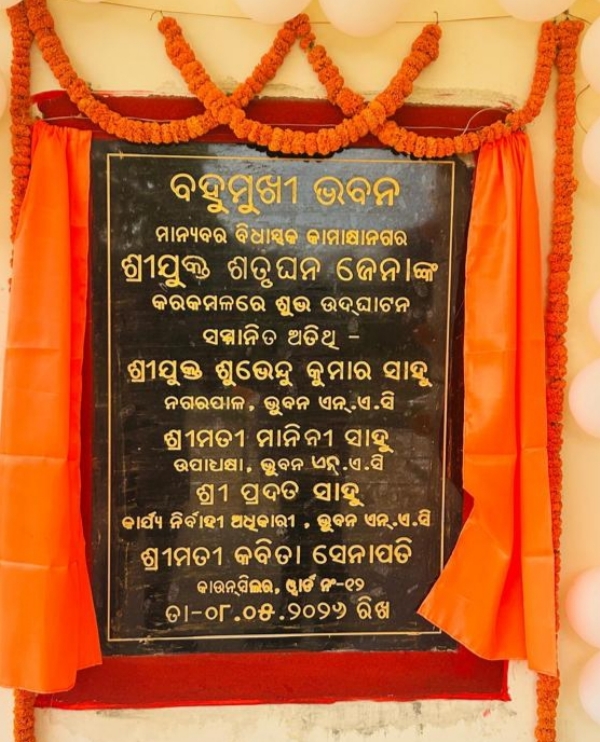 ବହୁମୁଖୀ ଭବନ
ମାନ୍ୟବର ବିଧାୟକ କାମାକ୍ଷାନଗର
ଶ୍ରୀଯୁକ୍ତ ଶତୃଘନ ଜେନାଙ୍କ
କରକମଳରେ ଶୁଭ ଉଦ୍‌ଘାଟନ
ସମ୍ମାନିତ ଅତିଥି -
ଶ୍ରୀଯୁକ୍ତ ଶୁଭେନ୍ଦୁ କୁମାର ସାହୁ
ନଗରପାଳ, ଭୁବନ ଏନ୍.ଏ.ସି
ଶ୍ରୀମତୀ ମାନିନୀ ସାହୁ
ଉପାଧକ୍ଷା, ଭୁବନ ଏନ୍.ଏ.ସି
ଶ୍ରୀ ପ୍ରଦତ ସାହୁ
କାର୍ଯ୍ୟ ନିର୍ବାହୀ ଅଧିକାରୀ , ଭୁବନ ଏନ୍.ଏ.ସି
ଶ୍ରୀମତୀ କବିତା ସେନାପତି
କାଉନ୍‌ସିଲର, ୱାର୍ଡ ନଂ-୧୨
ତା-୦୮.୦୫.୨୦୨୬ ରିଖ